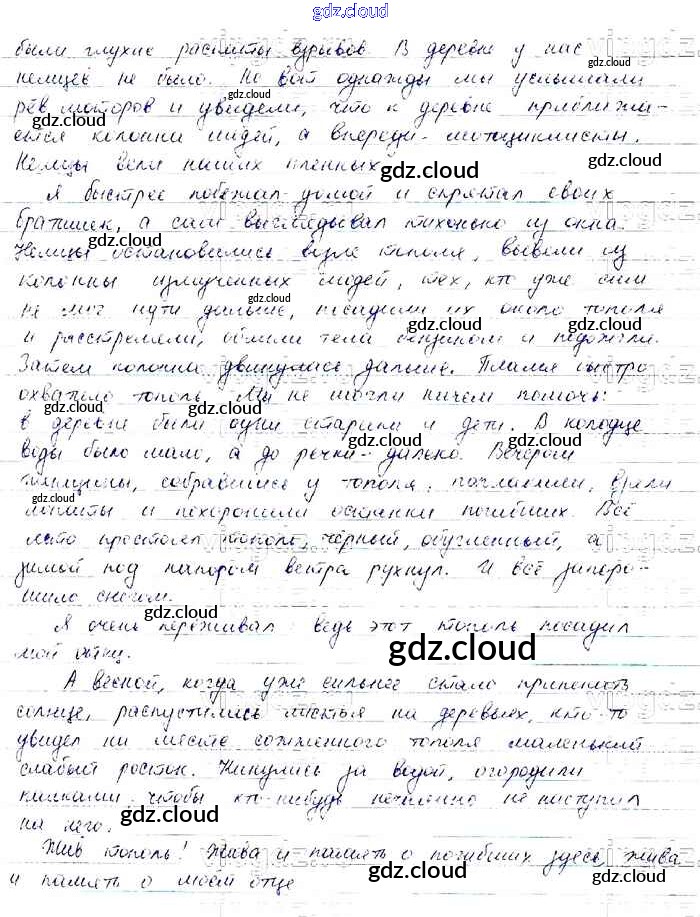 gdz.cloud
были глухие раскаты взрывов. В деревне у нас
немцев не было. Но вот однажды мы услышали
рёв моторов и увидели, что к деревне приближа-
ется колонна людей, а впереди - мотоциклисты.
Немцы вели наших пленных.
Я быстрее побежал домой и спрятал своих
братишек, а сам выглядывал тихонько из окна.
Немцы остановились возле тополя, вывели из
колонны измученных людей, тех, кто уже сам
не мог идти дальше, посадили их около тополя
и расстреляли, облили тела бензином и подожгли.
Затем колонна двинулась дальше. Пламя быстро
охватило тополь. Мы не могли ничем помочь:
в деревне были одни старики и дети. В колодце
воды было мало, а до речки - далеко. Вечером
женщины, собравшись у тополя, поплакали, взяли
лопаты и похоронили останки погибших. Всё
лето простоял тополь, чёрный, обугленный, а
зимой под напором ветра рухнул. И всё запоро-
шило снегом.
Я очень переживал: ведь этот тополь посадил
мой отец.
А весной, когда уже сильнее стало припекать
солнце, распустились листья на деревьях, кто-то
увидел на месте сожжённого тополя маленький
слабый росток. Кинулись за водой, огородили
колышками, чтобы кто-нибудь нечаянно не наступил
на него.
Жив тополь! Жива и память о погибших здесь, жива
и память о моём отце
gdz.cloud